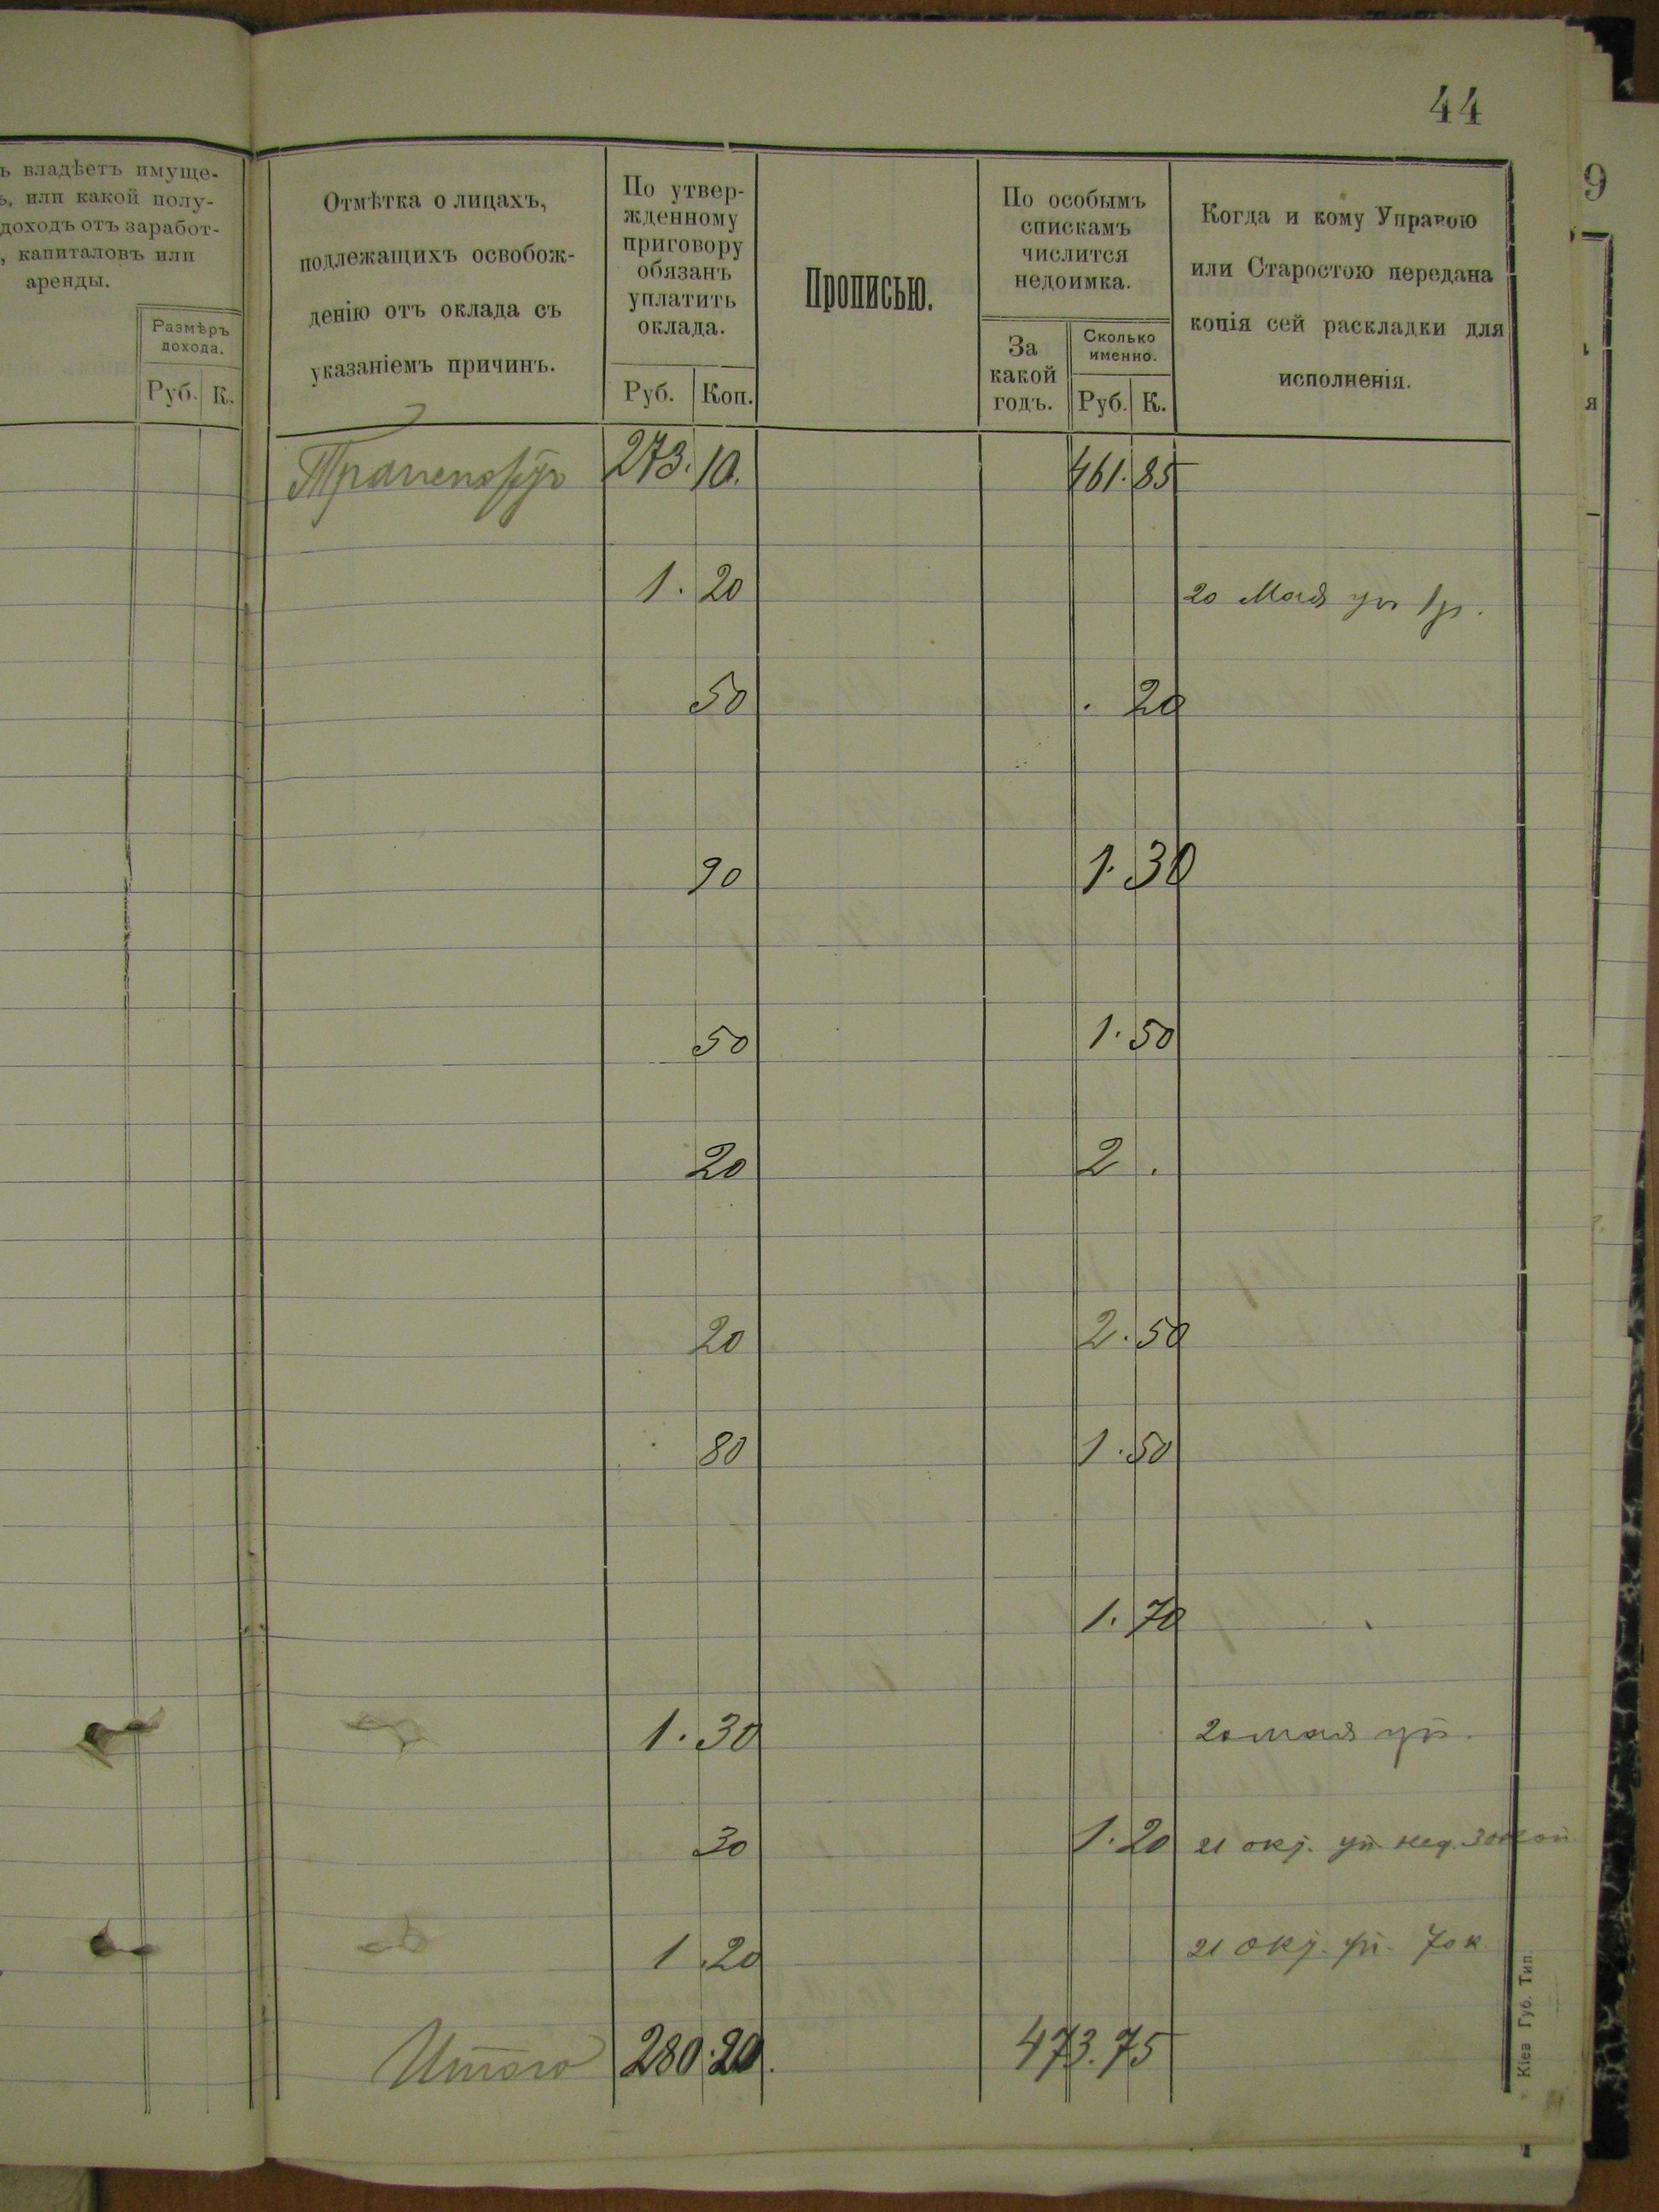 44
9
ъ владѣетъ имуще-
ь, или какой полу-
доходъ отъ заработ-
, капиталовъ или
аренды.
Размѣръ
дохода.
Руб. К.
Отмѣтка о лицахъ,
подлежащихъ освобож-
денію отъ оклада съ
указаніемъ причинъ.
По утвер-
жденному
приговору
обязанъ
уплатить
оклада.
Руб. Коп.
Прописью.
По особымъ
спискамъ
числится
недоимка.
За
какой
годъ.
Сколько
именно.
Руб. К.
Когда и кому Управою
или Старостою передана
копія сей раскладки для
исполненія.
я
Транспортъ 273. 10. 461. 85
1. 20 20 Мая уп 1р.
50 . 20
90 1. 30
50 1. 50
20 2 .
20 2. 50
80 1. 50
1. 70
1. 30 20 мая уп.
30 1. 20 21 окт. уп. нед. 30 коп
1. 20 21 окт. уп. 70 к
Итого 280. 20. 473. 75
Кіев Губ. Тип.